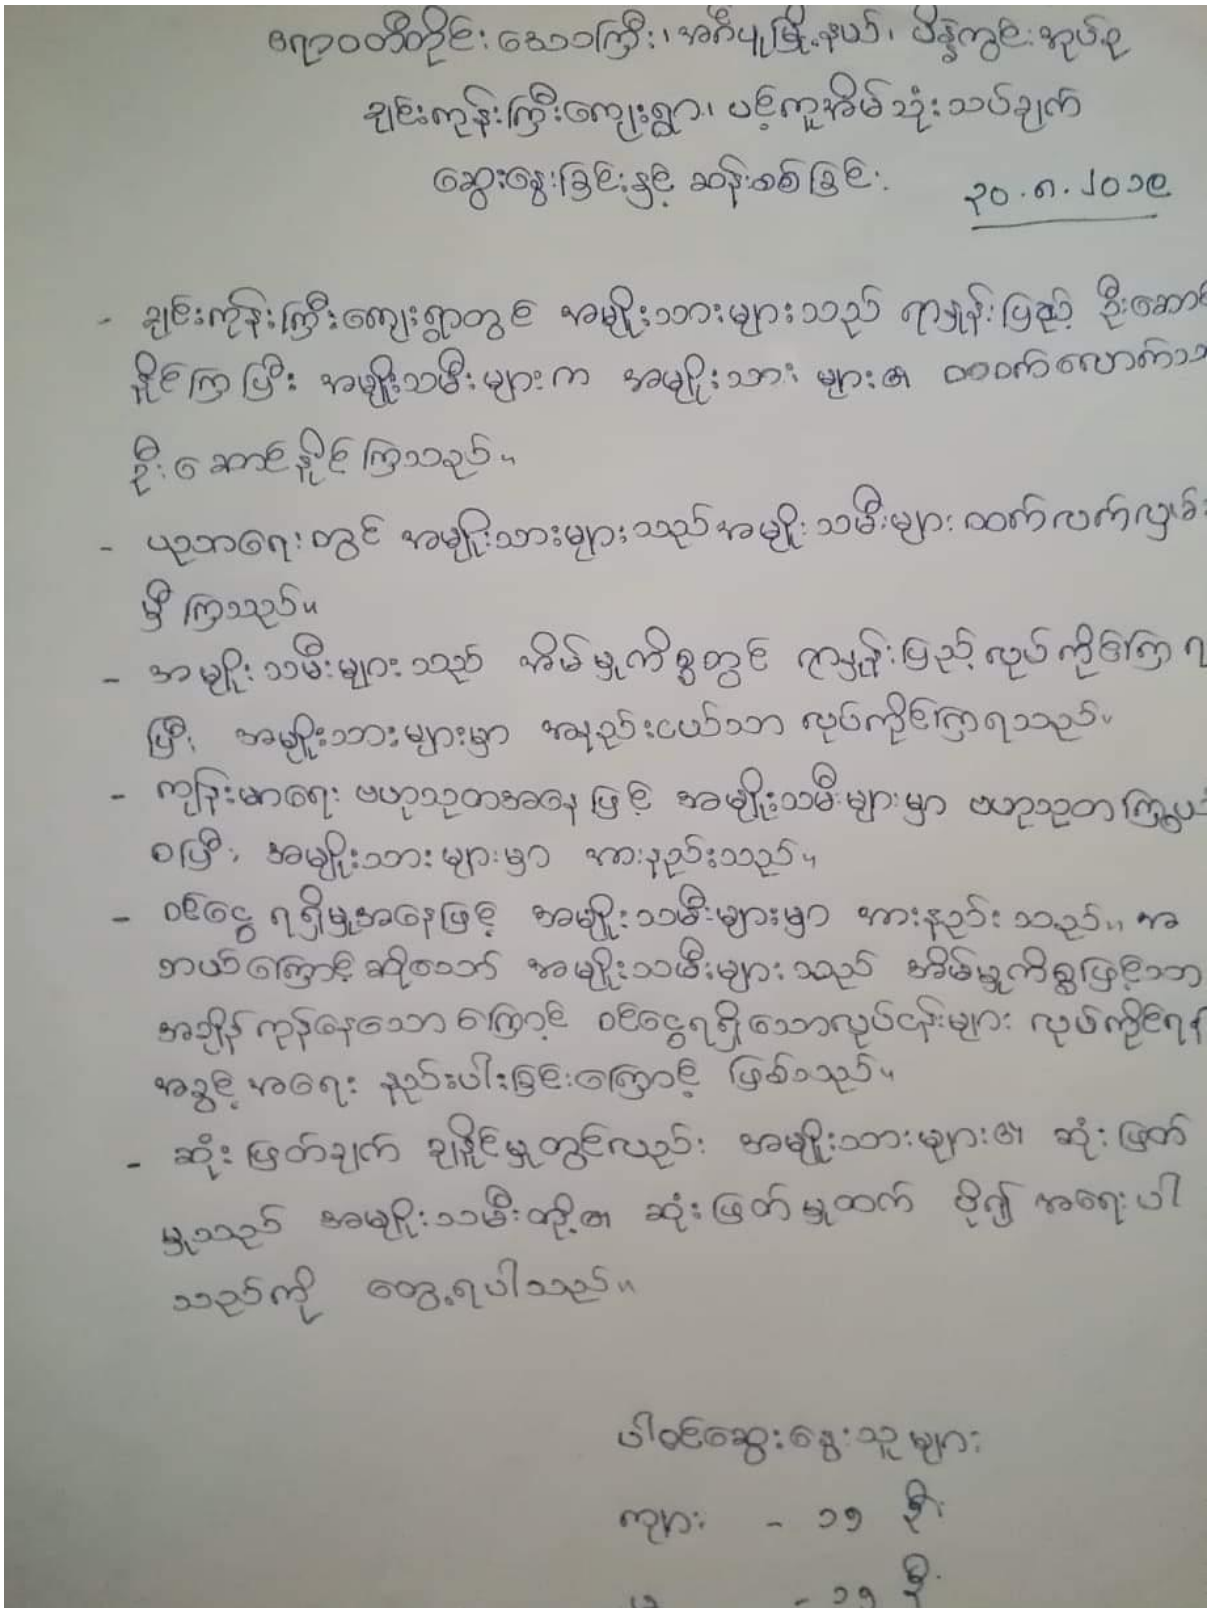 ဧရာဝတီတိုင်းဒေသကြီး၊ အင်္ဂပူမြို့နယ်၊ ပိန္နဲကွင်းအုပ်စု
ချင်းကုန်းကြီးကျေးရွာ၊ ပင့်ကူအိမ်သုံးသပ်ချက်
ဆွေးနွေးခြင်းနှင့် ဆန်းစစ်ခြင်း
၃၀.၈.၂၀၁၉
- ချင်းကုန်းကြီးကျေးရွာတွင် အမျိုးသားများသည် ရာနှုန်းပြည့် ဦးဆောင်
နိုင်ကြပြီး အမျိုးသမီးများက အမျိုးသား များ၏ ထဝက်လောက်သာ
ဦးဆောင်နိုင်ကြသည်။
- ပညာရေးတွင် အမျိုးသားများသည် အမျိုးသမီးများ ထက်လက်လှမ်း
မှီကြသည်။
- အမျိုးသမီးများသည် အိမ်မှုကိစ္စတွင် ရာနှုန်းပြည့် လုပ်ကိုင်ကြရ
ပြီး အမျိုးသားများမှာ အနည်းငယ်သာ လုပ်ကိုင်ကြရသည်။
- ကျန်းမာရေး ဗဟုသုတအနေဖြင့် အမျိုးသမီးများမှာ ဗဟုသုတကြွယ်
ဝပြီး အမျိုးသားများမှာ အားနည်းသည်။
- ဝင်ငွေ ရရှိမှုအနေဖြင့် အမျိုးသမီးများမှာ အားနည်းသည်။ အ
ဘယ်ကြောင့်ဆိုသော် အမျိုးသမီးများသည် အိမ်မှုကိစ္စဖြင့်သာ
အချိန်ကုန်နေသောကြောင့် ဝင်ငွေရရှိသောလုပ်ငန်းများ လုပ်ကိုင်ရန်
အခွင့်အရေး နည်းပါးခြင်းကြောင့် ဖြစ်သည်။
- ဆုံးဖြတ်ချက် ချနိုင်မှုတွင်လည်း အမျိုးသားများ၏ ဆုံးဖြတ်
မှုသည် အမျိုးသမီးတို့၏ ဆုံးဖြတ်မှုထက် ပို၍ အရေးပါ
သည်ကို တွေ့ရပါသည်။
ပါဝင်ဆွေးနွေးသူများ
ကျား - ၁၅ ဦး
မ - ၁၅ ဦး